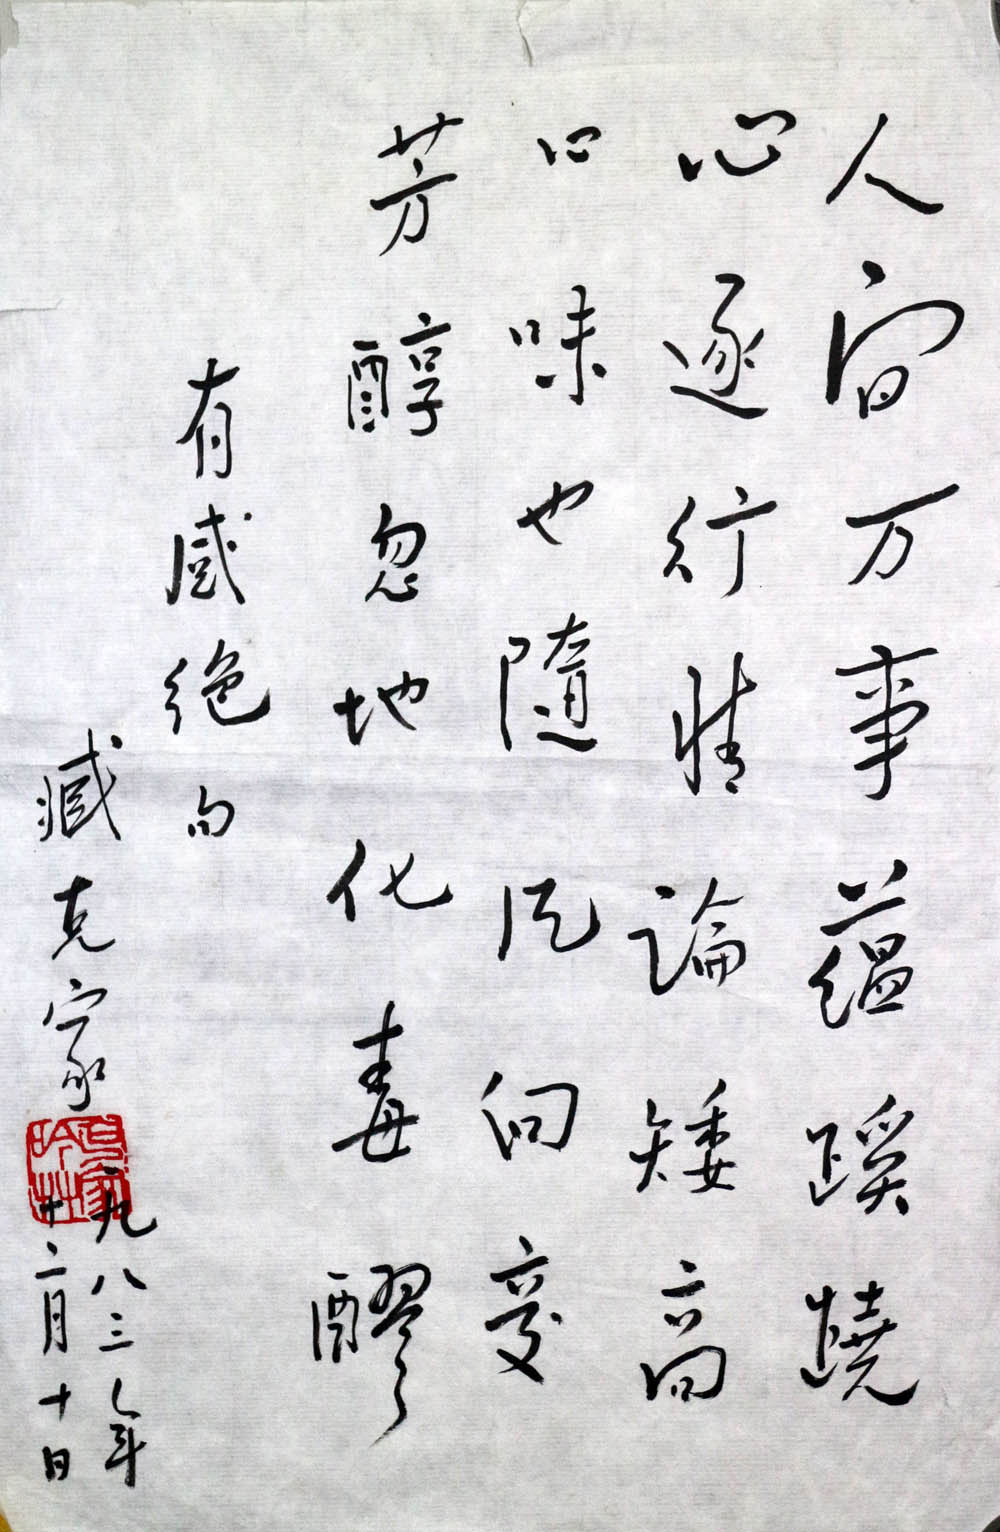 人间万事蕴蹊蹺
心逐行情論矮高
口味也隨风向变
芳醇忽地化毒醪
有感绝句
臧克家
一九八三年
十二月十日